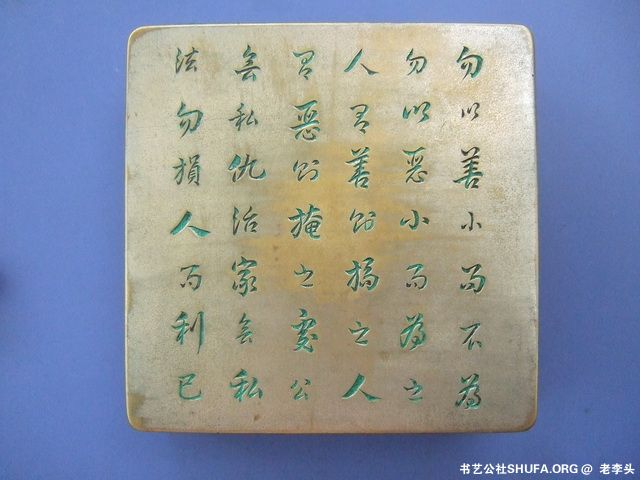 勿以善小而不為
勿以惡小而為之
人有善則揚之人
有惡則掩之處公
無私仇治家無私
法勿損人而利己
书艺公社SHUFA.ORG @ 老李头